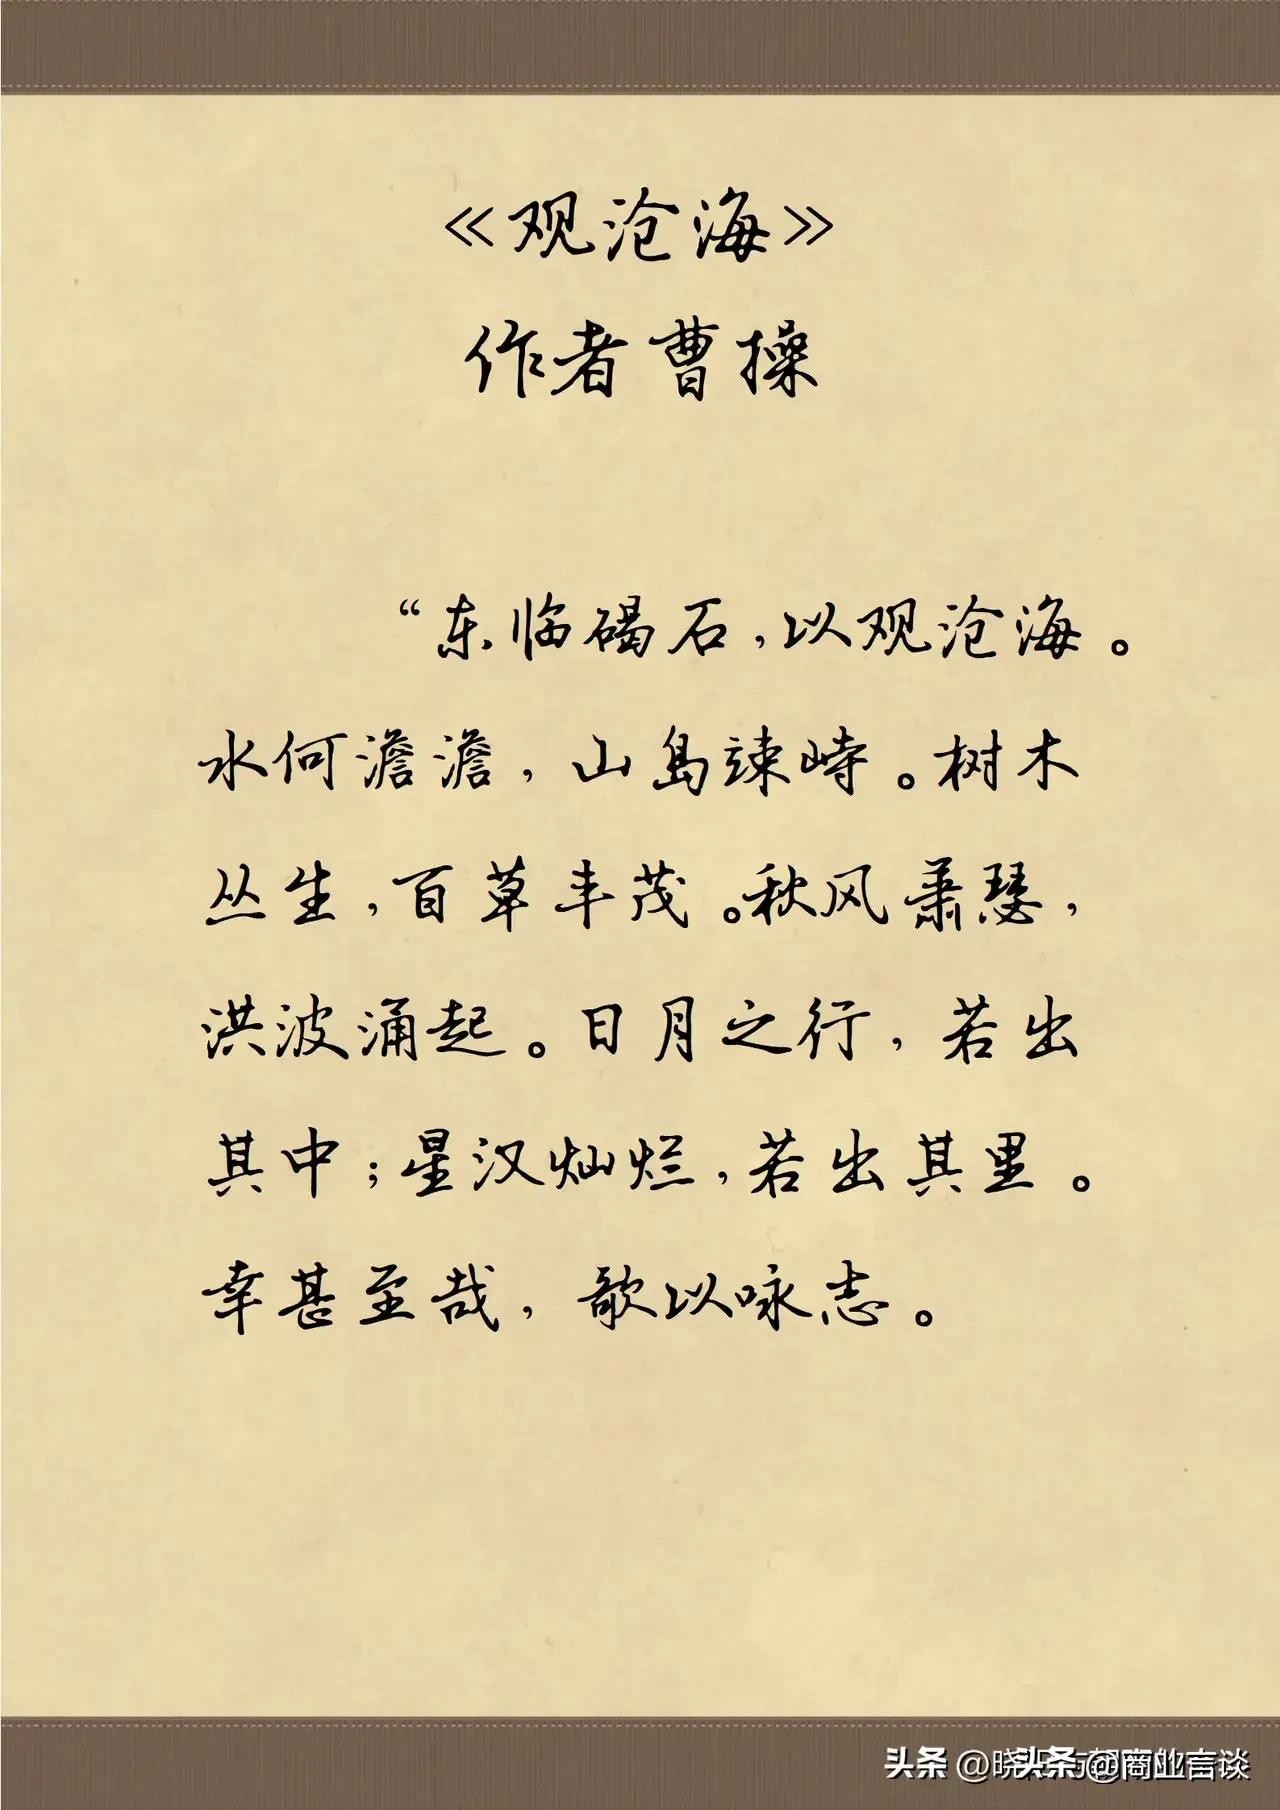 《观沧海》
作者曹操
“东临碣石,以观沧海。
水何澹澹,山岛竦峙。树木
丛生,百草丰茂。秋风萧瑟,
洪波涌起。日月之行,若出
其中;星汉灿烂,若出其里。
幸甚至哉,歌以咏志。
头条 @晓 头条 @商业言谈